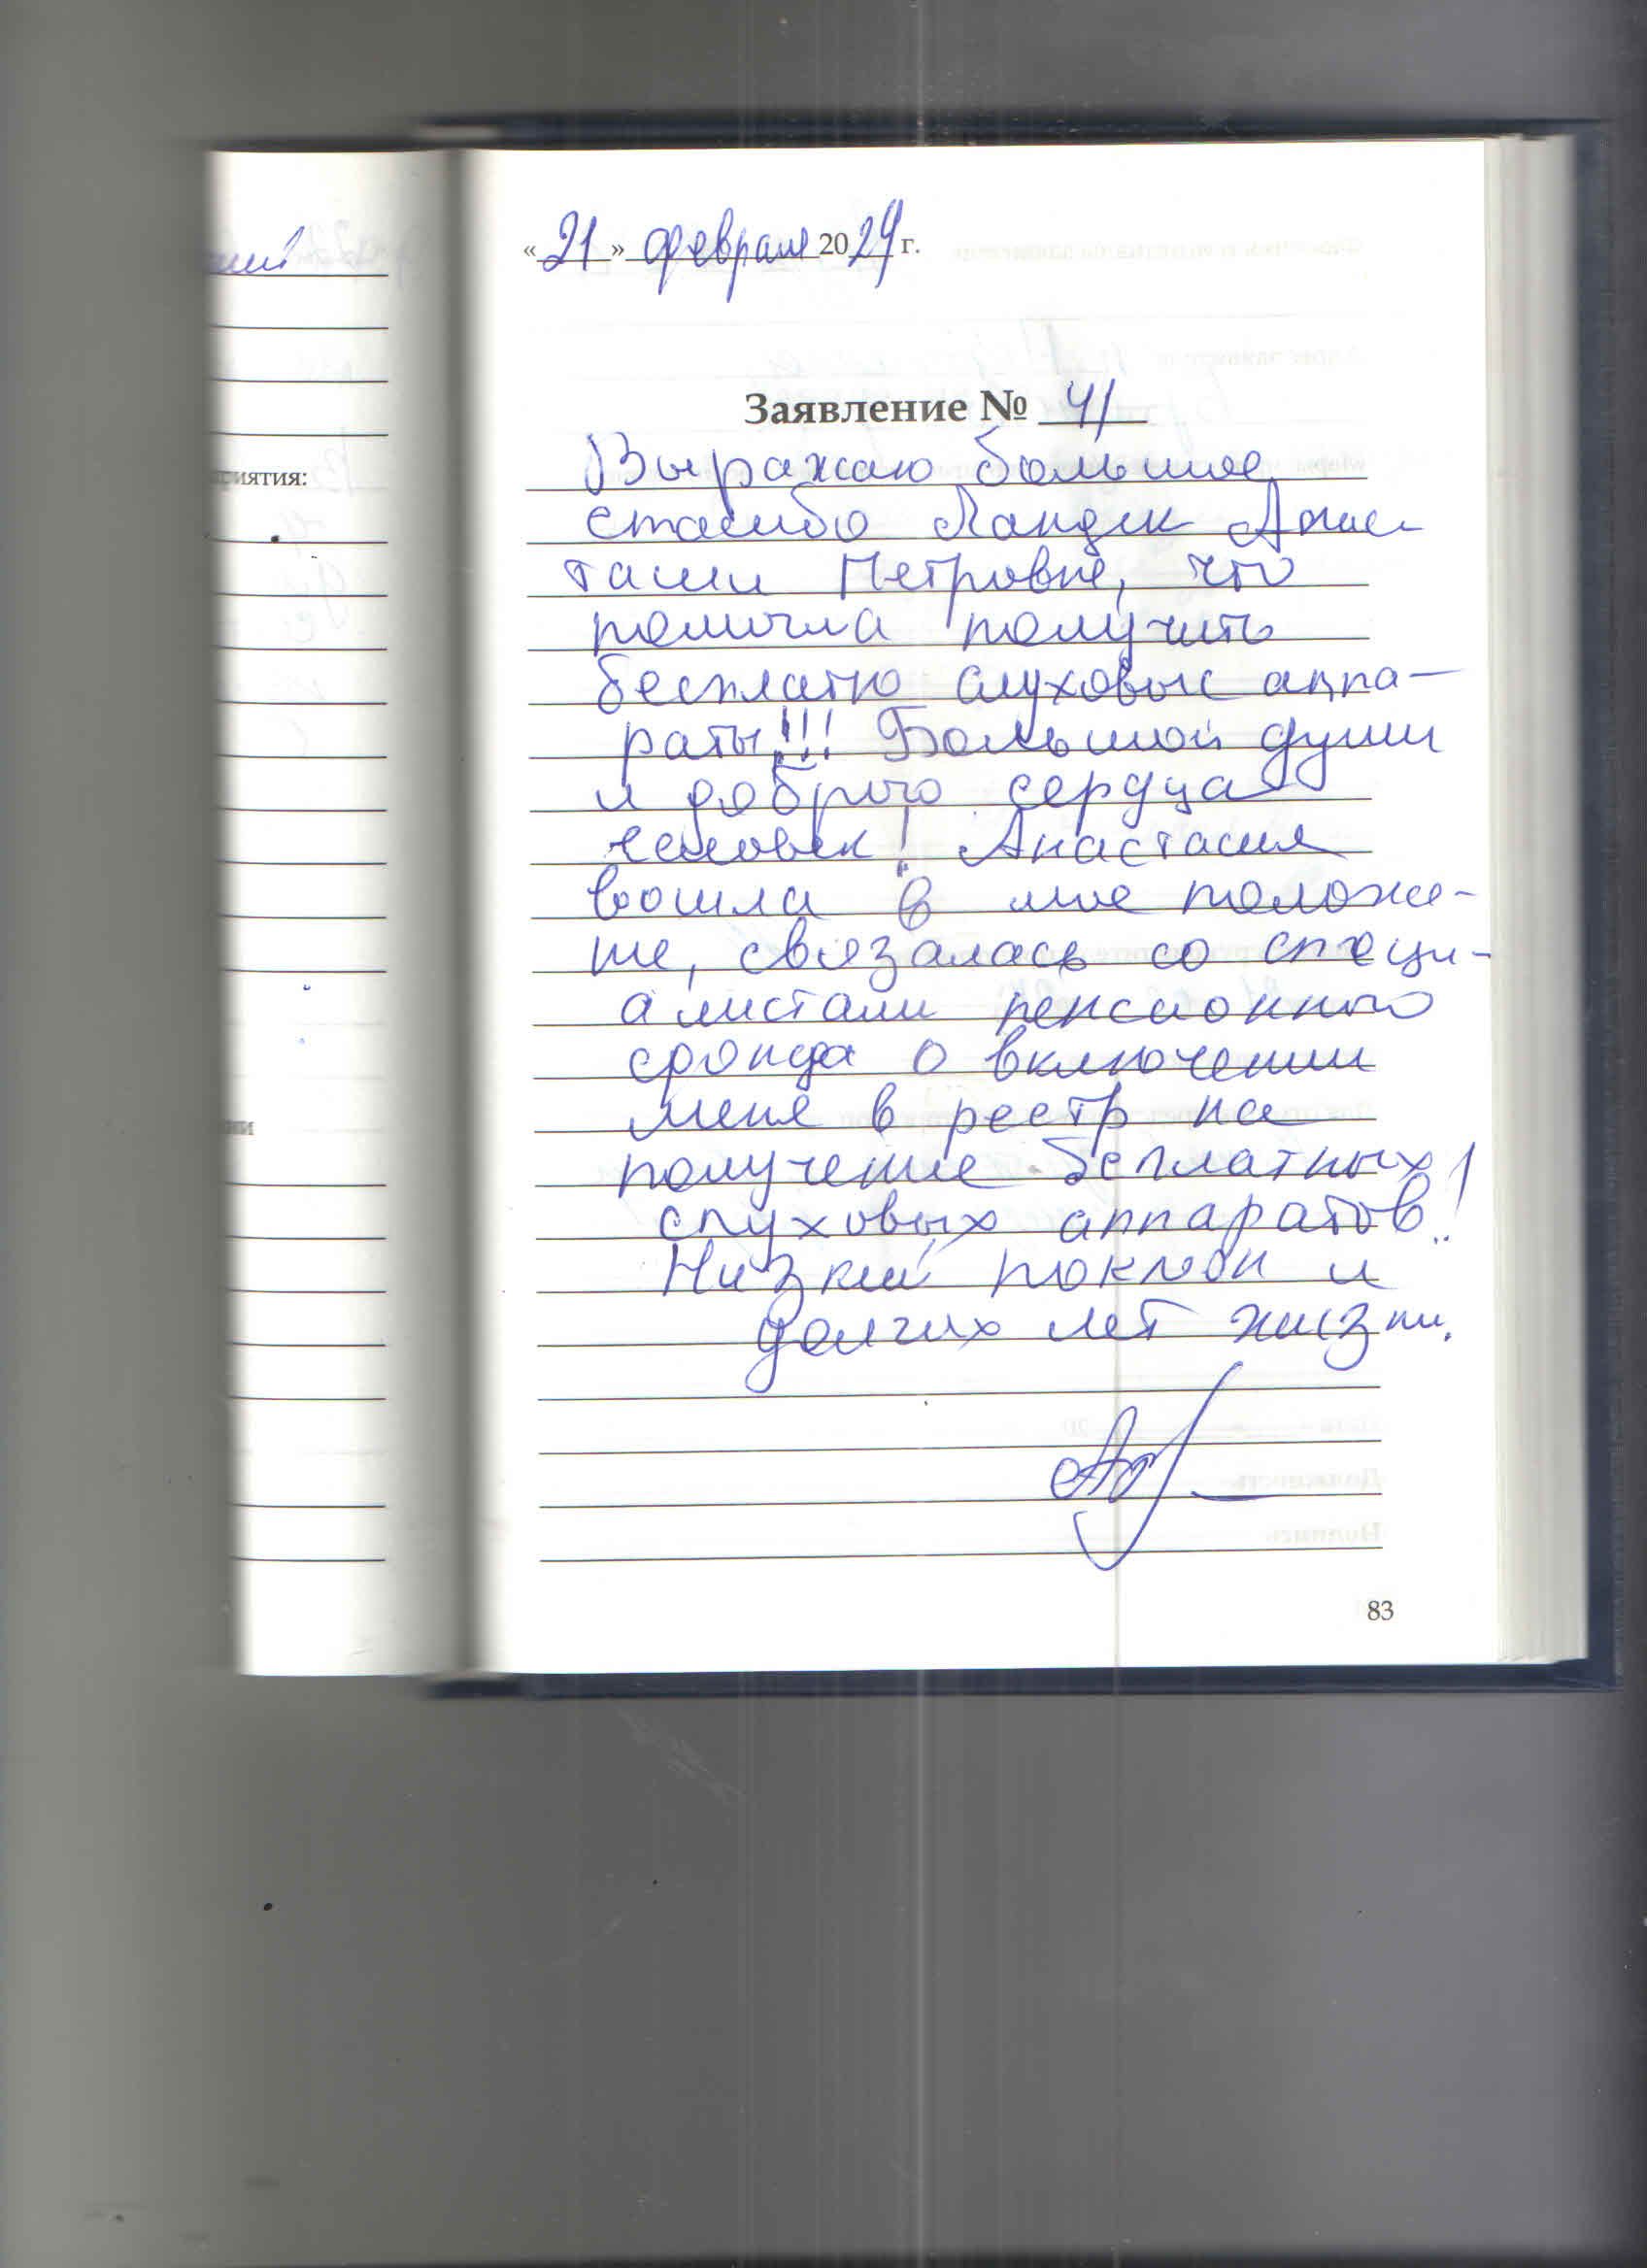 «21» февраля 2024 г.
Заявление № 41
риятия:
Выражаю большое
спасибо Ландик Анас-
тасии Петровне, что
помогла получить
бесплатно слуховые аппа-
раты!!! Большой души
и доброго сердца
человек! Анастасия
вошла в мое положе-
ние, связалась со специ-
алистами пенсионного
фонда о включении
меня в реестр на
получение бесплатных
слуховых аппаратов!
Низкий поклон и
долгих лет жизни.
83